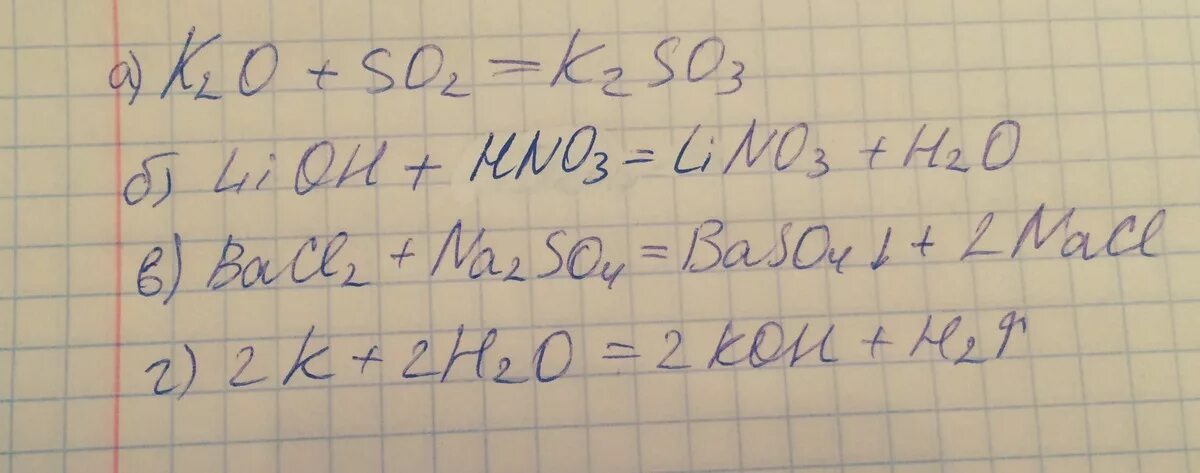 а) K₂O + SO₂ = K₂SO₃
б) LiOH + HNO₃ = LiNO₃ + H₂O
в) BaCl₂ + Na₂SO₄ = BaSO₄↓ + 2NaCl
г) 2K + 2H₂O = 2KOH + H₂↑